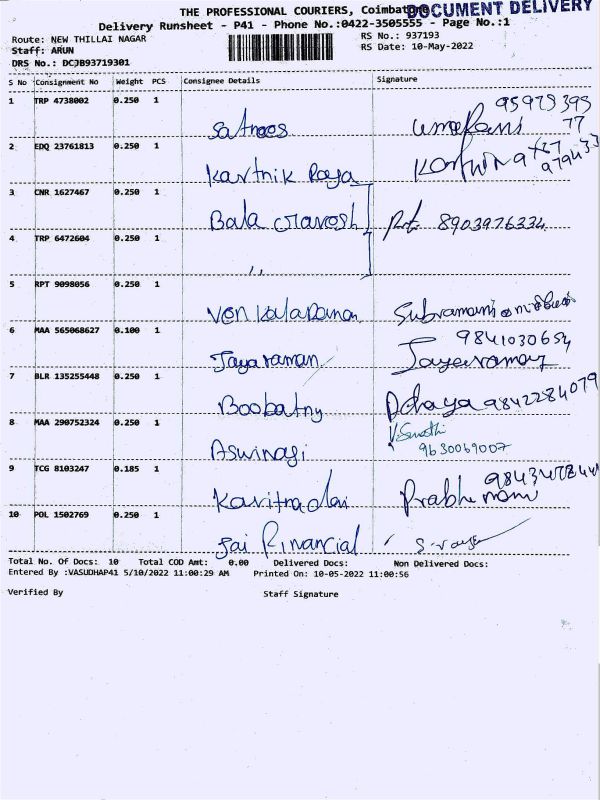 THE PROFESSIONAL COURIERS, Coimbatore
DOCUMENT DELIVERY
Delivery Runsheet - P41 - Phone No.:0422-3505555 - Page No.:1
Route: NEW THILLAI NAGAR
RS No.: 937193
Staff: ARUN
RS Date: 10-May-2022
DRS No.: DCJB93719301
S No Consignment No Weight PCS Consignee Details Signature
1 TRP 4738002 0.250 1
95975395
77
2 EDQ 23761813 0.250 1
Karthik Raya
3 CNR 1627467 0.250 1
Bala 8903976334
4 TRP 6472604 0.250 1
,,
5 RPT 9098056 0.250 1
Venkataraman Subramani
6 MAA 565068627 0.100 1
9841030654
Jayaraman Jayaraman
7 BLR 135255448 0.250 1
Boobathy 9842284079
8 MAA 290752324 0.250 1
Aswinagi 9630069007
9 TCG 8103247 0.185 1
10 POL 1502769 0.250 1
Jai Financial
Total No. Of Docs: 10 Total COD Amt: 0.00 Delivered Docs: Non Delivered Docs:
Entered By :VASUDHAP41 5/10/2022 11:00:29 AM Printed On: 10-05-2022 11:00:56
Verified By Staff Signature